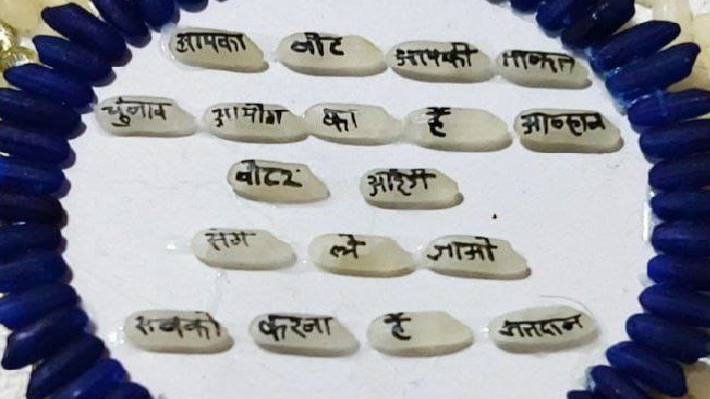 आपका वोट आपकी ताकत
चुनाव आयोग का है आव्हान
वोटर आईडी संग
ले जाओ
सबको करना है मतदान